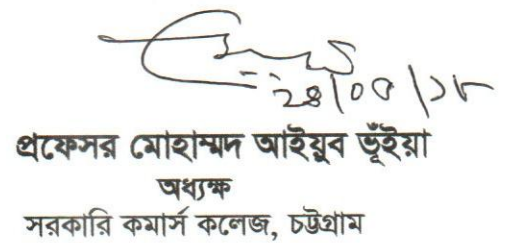 ২৪/০৫/১৮
প্রফেসর মোহাম্মদ আইয়ুব ভূঁইয়া
অধ্যক্ষ
সরকারি কমার্স কলেজ, চট্টগ্রাম